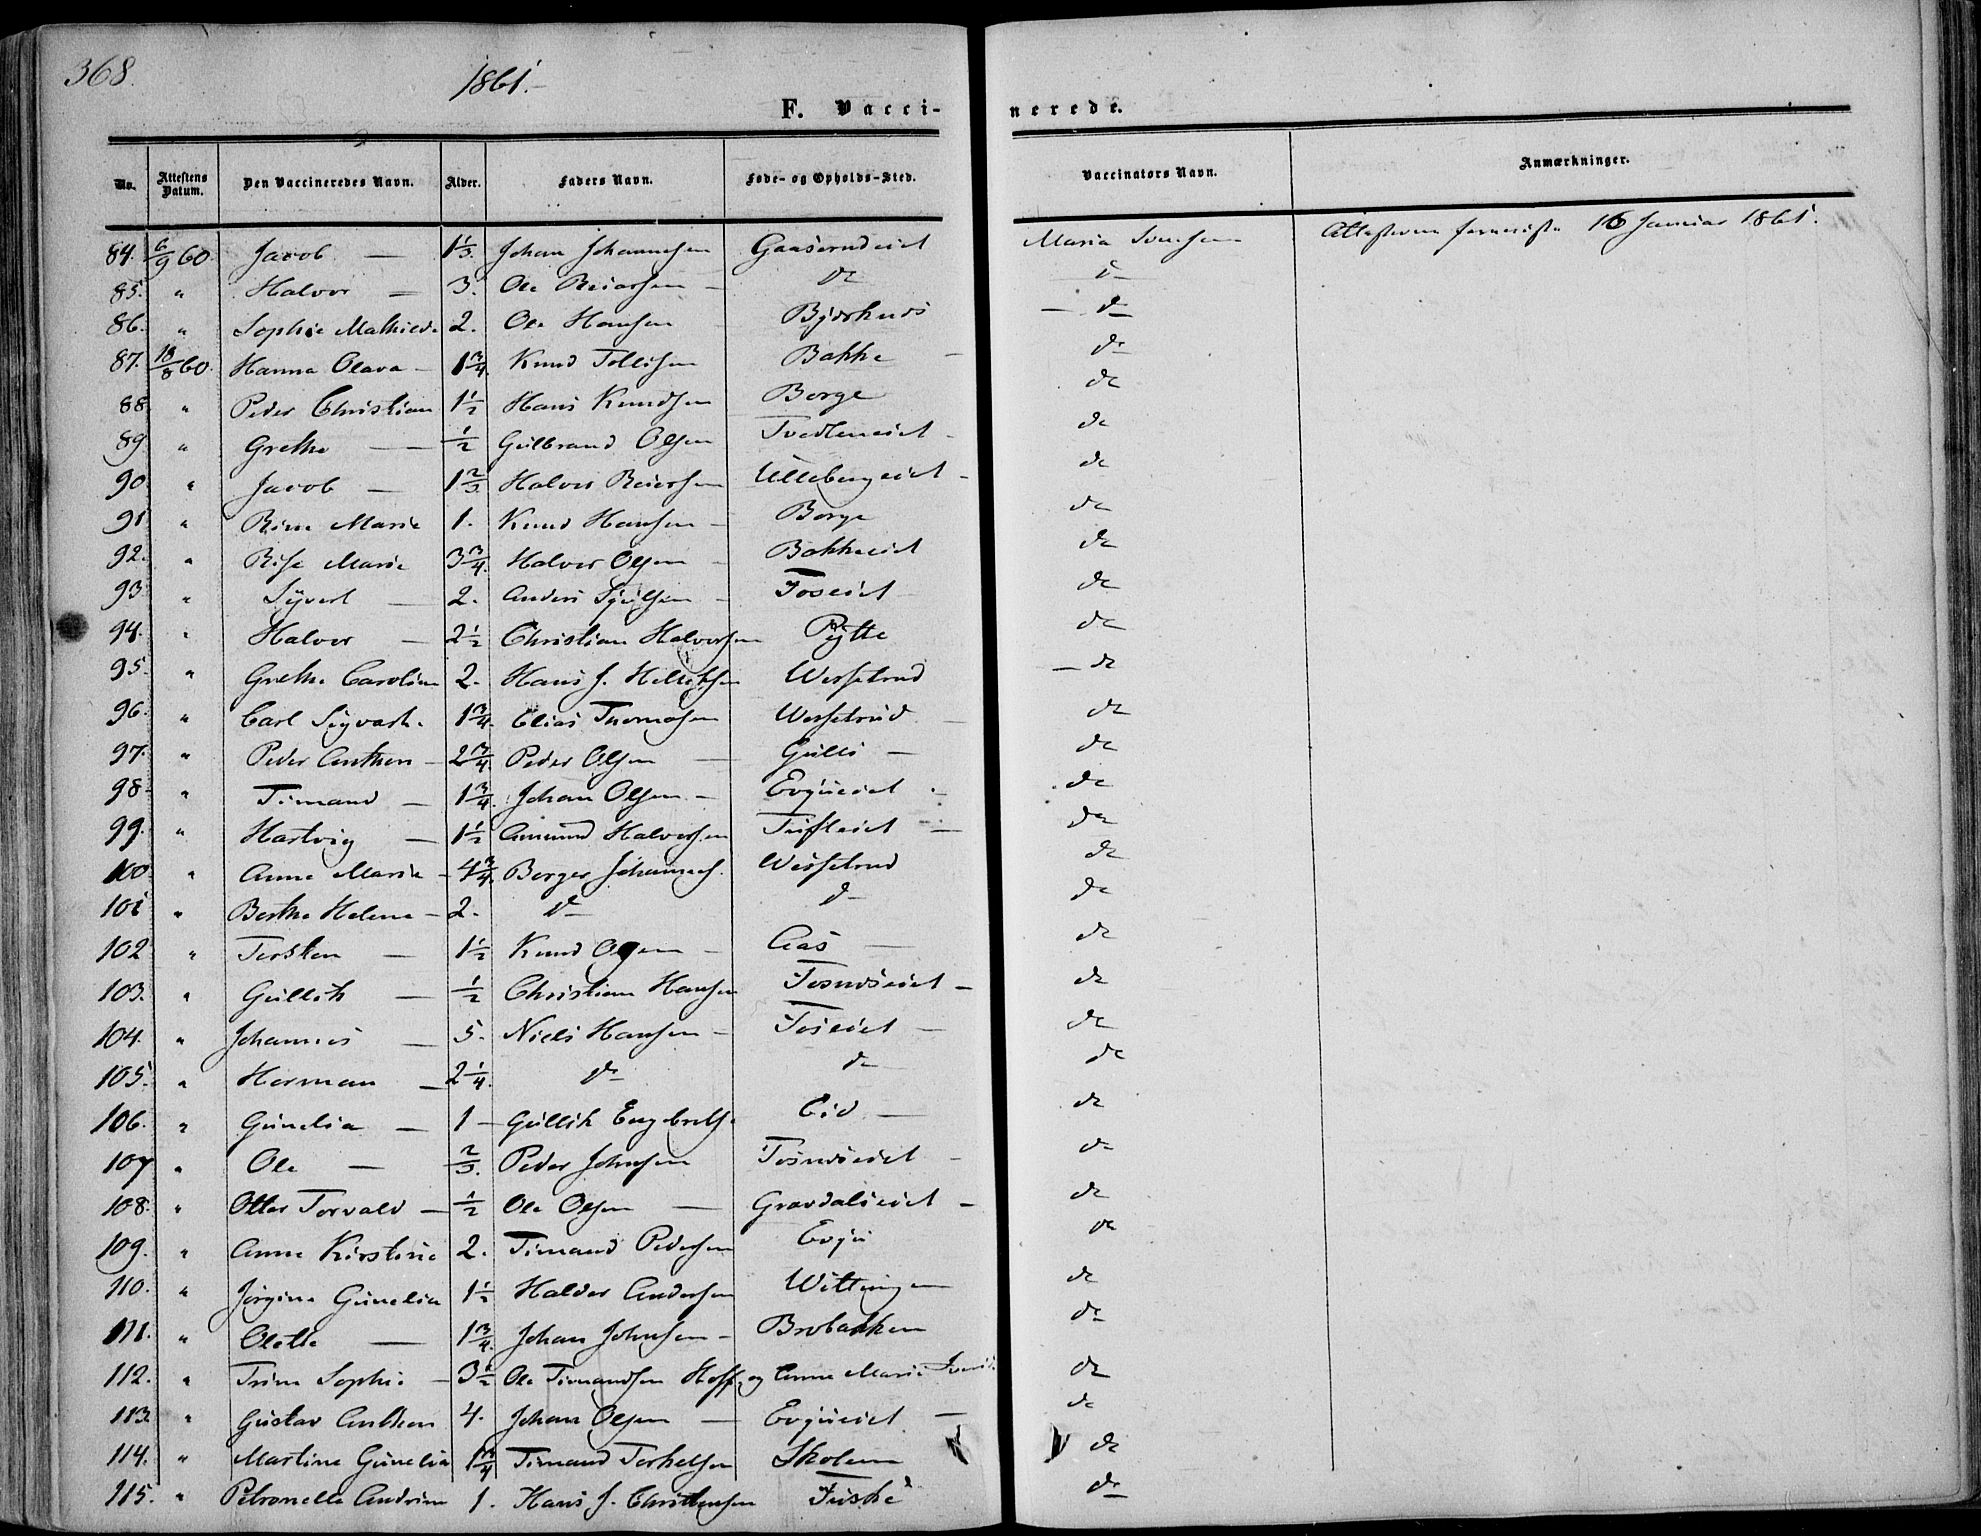 368.
1861.-
F. Vacci-
nerede.
No. Attestens Datum. Den Vaccineredes Navn. Alder. Faders Navn. Føde- og Opholds-Sted. Vaccinators Navn. Anmærkninger.
84. 6/9 60. Jacob — 1 1/3. Johan Johannesen Gaaserudeiet Maria 16 Januar 1861.
85. " Halvor — 3. Ole Reiersen - do do
86. " Sophie Mathilde 2. Ole Hansen do
87. 18/8 60. Hanna Olava - 1 3/4. Knud Tollefsen Bakke - do
88. " Peder Christian 1 1/2 Hans Knudsen Borge do
89. " Grethe — 1/2 Gulbrand Olsen Tvedteneiet - do
90. " Jacob — 1 2/3 Halvor Reiersen Ullebergeiet - do
91. " Marie 1. Knud Hansen - Borge do
92. " Marie 3 3/4. Halvor Olsen - Bakkeeiet do
93. " Syvert — 2. Anders - Foseiet do
94. " Halvor — 2 1/2 Christian Halvorsen Pytte do
95. " Grethe Caroline 2. Hans J. Wessetrud - do
96. " Carl Sigvart. 1 3/4. Elias Thomasen Wessetrud - do
97. " Peder Anthon - 2 3/4. Peder Olsen — Gulli — do
98. " Timand — 1 3/4. Johan Olsen - Evjueiet - do
99. " Hartvig — 1 1/2 Amund Halvorsen Tufteiet — do
100. " Anne Marie - 4 3/4. Borger Johannes. Wessetrud do
101 " Berthe Helene - 2. do do do
102 " Torsten — 1 1/2 Knud Olsen - Aas — do
103. " Gullik — 1/2 Christian Hansen - do
104. " Johannes — 5. Niels Hansen - Foseiet — do
105. " Herman — 2 1/4. do do do
106. " Gunelia — 1 - Gullik Engebrets. Eid — do
107 " Ole — 2/3. Peder Johnsen - do
108. " Otter Torvald — 1/2 Ole Olsen — Gravdalseiet - do
109. " Anne Kirstine 2. Timand Pedersen Evju do
110. " Jørgine Gunelia 1 1/2 Haldor Andersen Wittingen do
111. " Olette — 1 3/4. Johan Johnsen - Brobakken do
112. " Trine Sophie - 3 1/2 Ole Timandsen Hoff og Anne Marie do
113. " Gustav Anthon 4. Johan Olsen — Evjueiet — do
114. " Martine Gunelia 1 3/4 Timand Torkelsen Skolen do
115. " Petronelle Andrine 1. Hans J. Christensen do